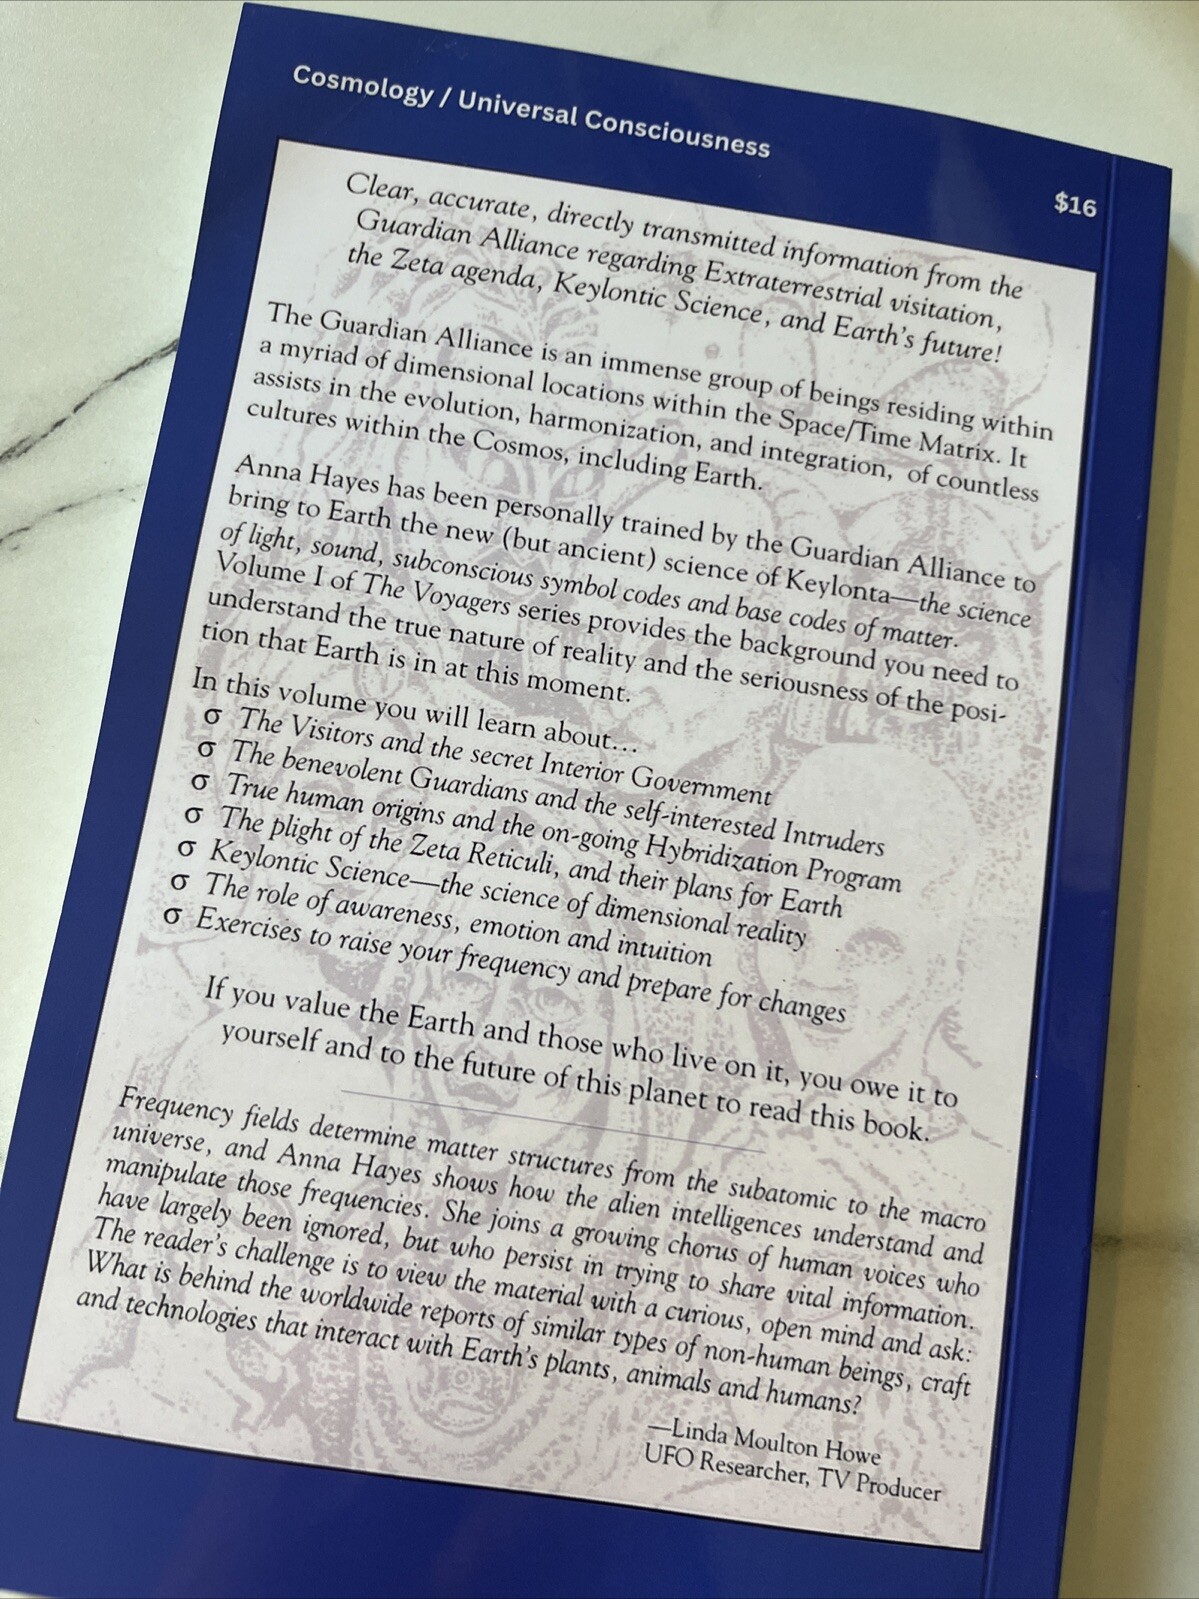 Cosmology / Universal Consciousness
$16
Clear, accurate, directly transmitted information from the
Guardian Alliance regarding Extraterrestrial visitation,
the Zeta agenda, Keylontic Science, and Earth's future!
The Guardian Alliance is an immense group of beings residing within
a myriad of dimensional locations within the Space/Time Matrix. It
assists in the evolution, harmonization, and integration, of countless
cultures within the Cosmos, including Earth.
Anna Hayes has been personally trained by the Guardian Alliance to
bring to Earth the new (but ancient) science of Keylonta—the science
of light, sound, subconscious symbol codes and base codes of matter.
Volume I of The Voyagers series provides the background you need to
understand the true nature of reality and the seriousness of the posi-
tion that Earth is in at this moment.
In this volume you will learn about...
σ The Visitors and the secret Interior Government
σ The benevolent Guardians and the self-interested Intruders
σ True human origins and the on-going Hybridization Program
σ The plight of the Zeta Reticuli, and their plans for Earth
σ Keylontic Science—the science of dimensional reality
σ The role of awareness, emotion and intuition
σ Exercises to raise your frequency and prepare for changes
If you value the Earth and those who live on it, you owe it to
yourself and to the future of this planet to read this book.
Frequency fields determine matter structures from the subatomic to the macro
universe, and Anna Hayes shows how the alien intelligences understand and
manipulate those frequencies. She joins a growing chorus of human voices who
have largely been ignored, but who persist in trying to share vital information.
The reader's challenge is to view the material with a curious, open mind and ask:
What is behind the worldwide reports of similar types of non-human beings, craft
and technologies that interact with Earth's plants, animals and humans?
—Linda Moulton Howe
UFO Researcher, TV Producer